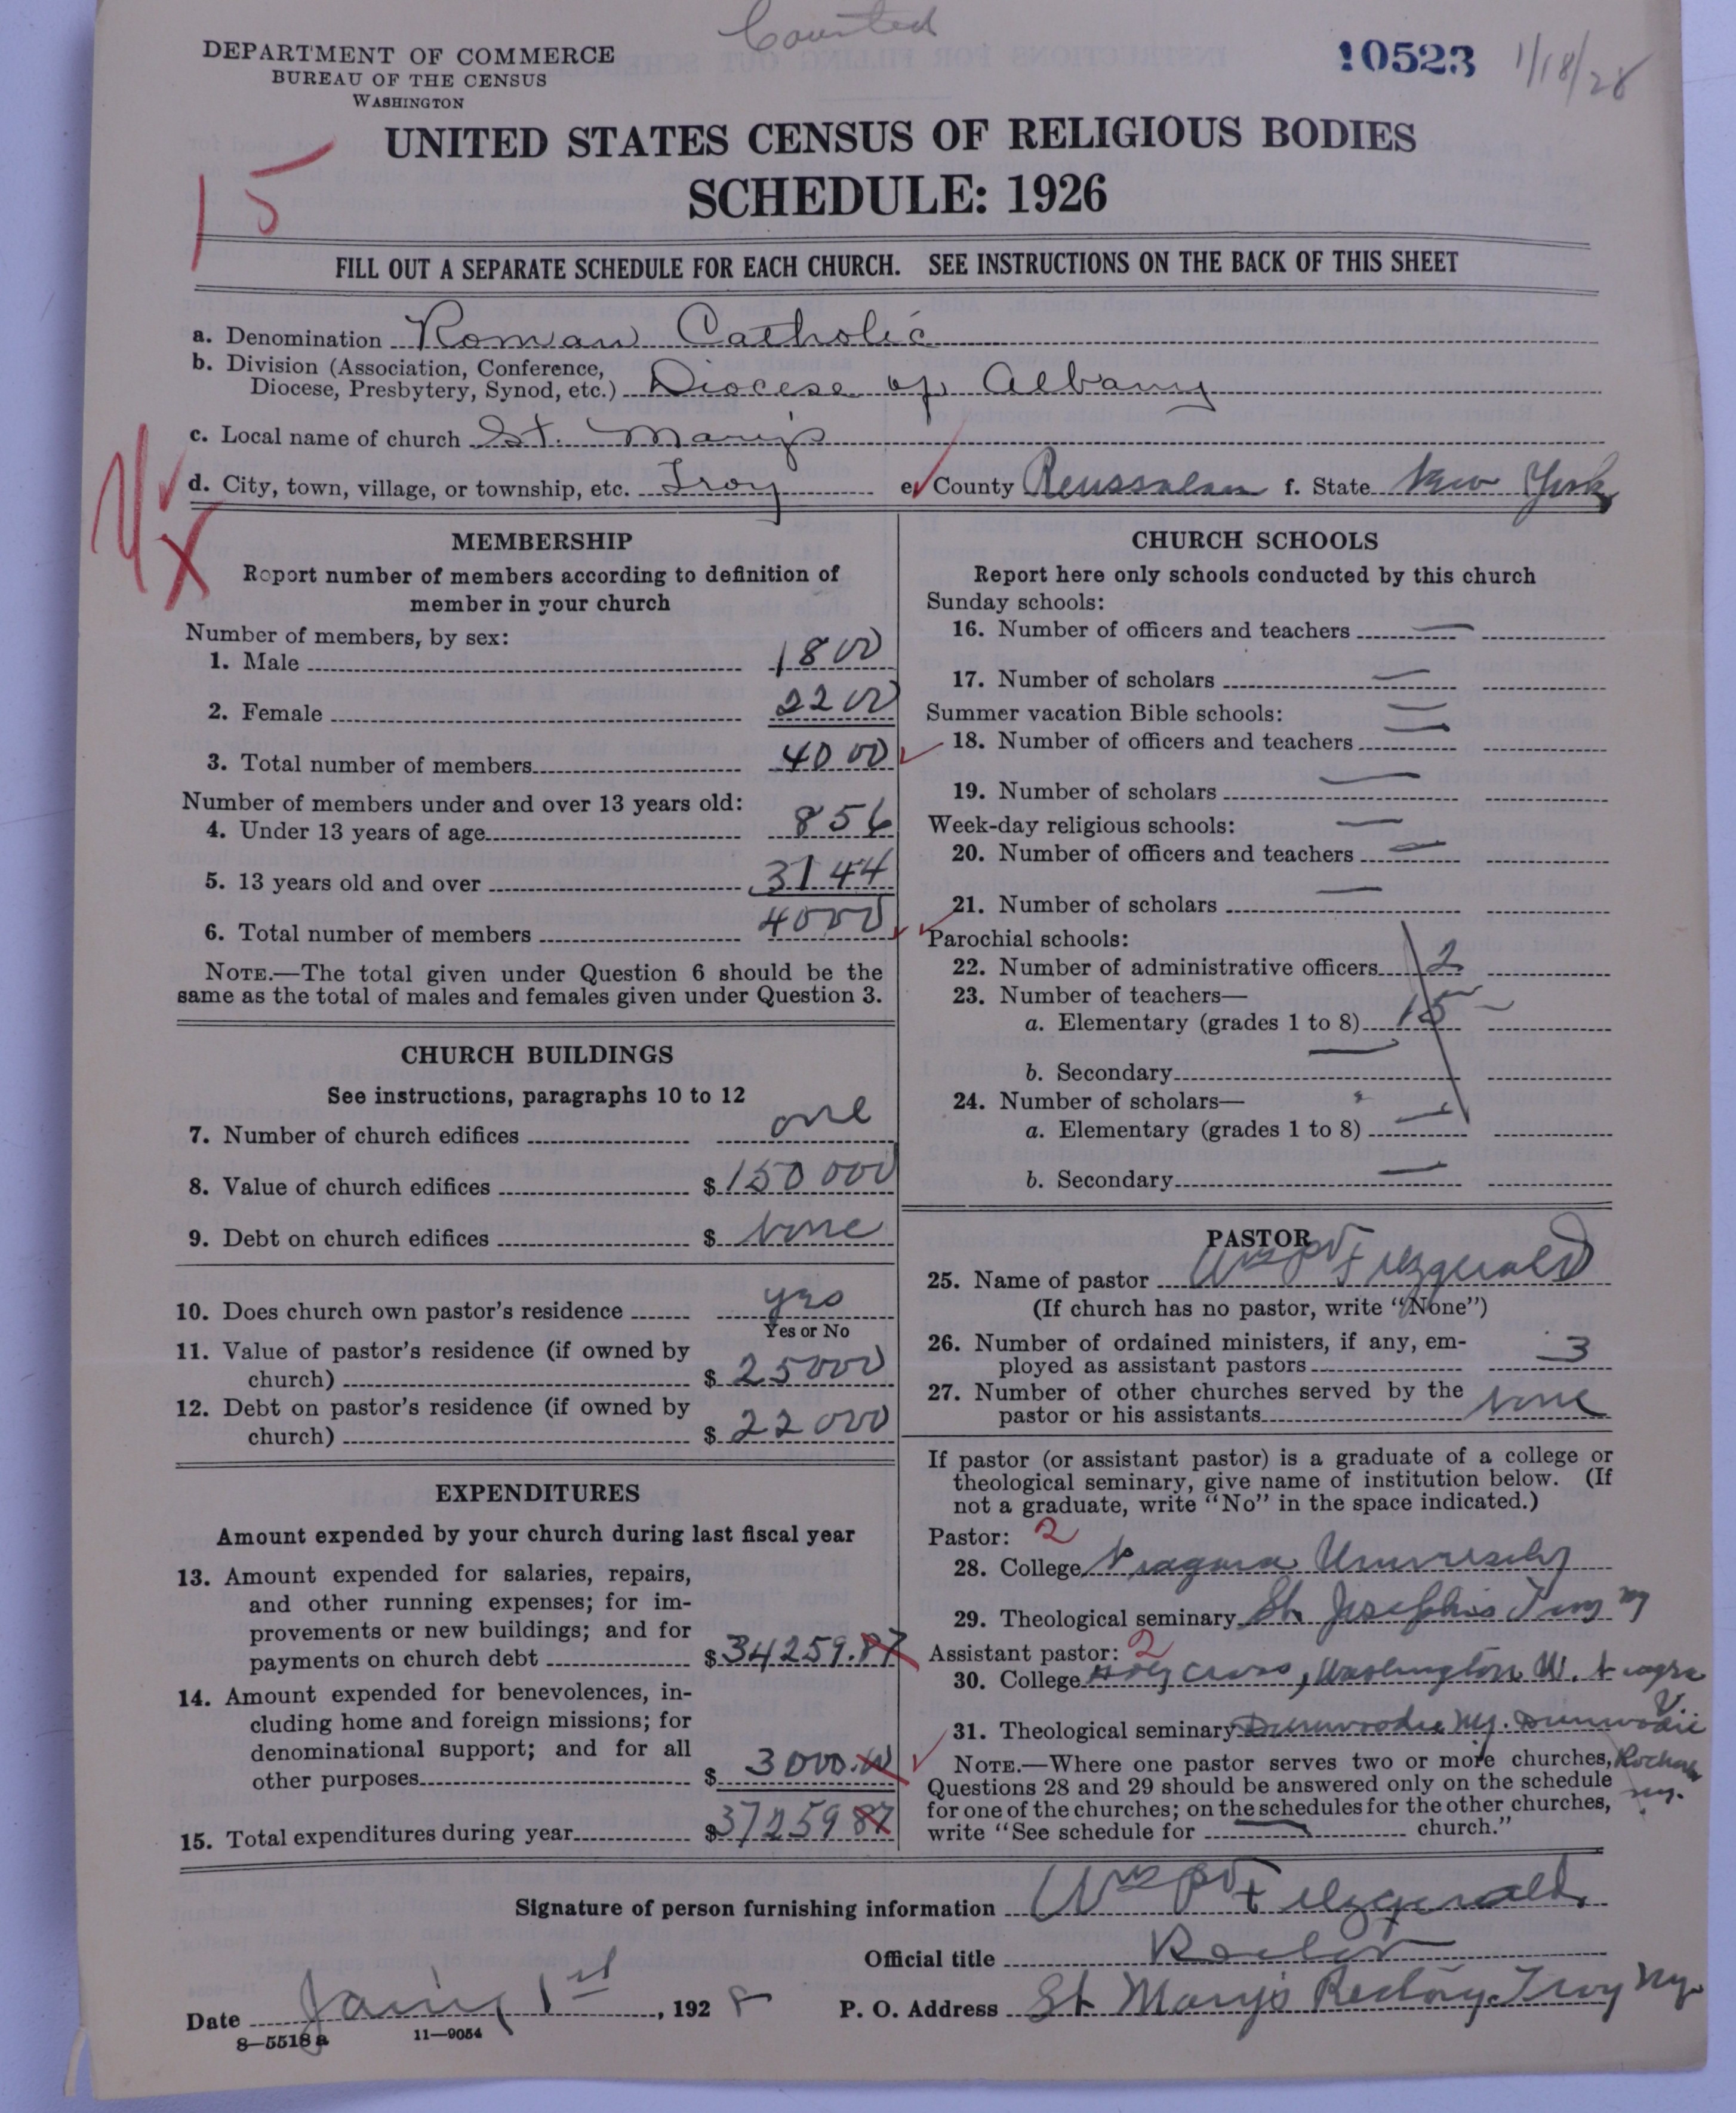 Counted
DEPARTMENT OF COMMERCE
BUREAU OF THE CENSUS
WASHINGTON
10523 1/18/28
UNITED STATES CENSUS OF RELIGIOUS BODIES
SCHEDULE: 1926
15
FILL OUT A SEPARATE SCHEDULE FOR EACH CHURCH. SEE INSTRUCTIONS ON THE BACK OF THIS SHEET
a. Denomination Roman Catholic
b. Division (Association, Conference,
Diocese, Presbytery, Synod, etc.) Diocese of Albany
c. Local name of church St. Mary's
d. City, town, village, or township, etc. Troy e. County Renssalear f. State New York
MEMBERSHIP
Report number of members according to definition of
member in your church
Number of members, by sex:
1. Male 1800
2. Female 2200
3. Total number of members 4000
Number of members under and over 13 years old:
4. Under 13 years of age 856
5. 13 years old and over 3144
6. Total number of members 4000
NOTE.—The total given under Question 6 should be the
same as the total of males and females given under Question 3.
CHURCH BUILDINGS
See instructions, paragraphs 10 to 12
7. Number of church edifices one
8. Value of church edifices $ 150 000
9. Debt on church edifices $ None
10. Does church own pastor's residence yes
Yes or No
11. Value of pastor's residence (if owned by
church) $ 25000
12. Debt on pastor's residence (if owned by
church) $ 22000
EXPENDITURES
Amount expended by your church during last fiscal year
13. Amount expended for salaries, repairs,
and other running expenses; for im-
provements or new buildings; and for
payments on church debt $ 34259.87
14. Amount expended for benevolences, in-
cluding home and foreign missions; for
denominational support; and for all
other purposes $ 3000.00
15. Total expenditures during year $ 37259 87
CHURCH SCHOOLS
Report here only schools conducted by this church
Sunday schools:
16. Number of officers and teachers —
17. Number of scholars —
Summer vacation Bible schools: —
18. Number of officers and teachers —
19. Number of scholars —
Week-day religious schools: —
20. Number of officers and teachers —
21. Number of scholars —
Parochial schools:
22. Number of administrative officers 2
23. Number of teachers—
a. Elementary (grades 1 to 8) 15 —
b. Secondary —
24. Number of scholars—
a. Elementary (grades 1 to 8) —
b. Secondary —
PASTOR
25. Name of pastor Wm P Fitzgerald
(If church has no pastor, write "None")
26. Number of ordained ministers, if any, em-
ployed as assistant pastors 3
27. Number of other churches served by the
pastor or his assistants None
If pastor (or assistant pastor) is a graduate of a college or
theological seminary, give name of institution below. (If
not a graduate, write "No" in the space indicated.)
Pastor: 2
28. College Niagara University
29. Theological seminary St. Josephs Troy NY
Assistant pastor: 2
30. College Holy Cross, Washington U. Niagra
U.
31. Theological seminary Dunwoodie NY. Dunwodie
NOTE.—Where one pastor serves two or more churches,
Questions 28 and 29 should be answered only on the schedule
for one of the churches; on the schedules for the other churches,
write "See schedule for — church."
Ny.
Signature of person furnishing information Wm P Fitzgerald
Official title Rector
Date Jany 1st, 1928 P. O. Address St Mary's Rectory Troy Ny.
8—5518 a 11—9054